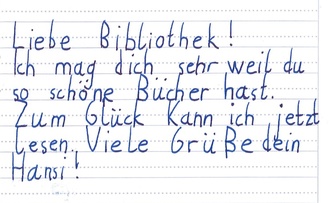 Liebe Bibliothek!
Ich mag dich sehr weil du
so schöne Bücher hast.
Zum Glück kann ich jetzt
lesen. Viele Grüße dein
Hansi!